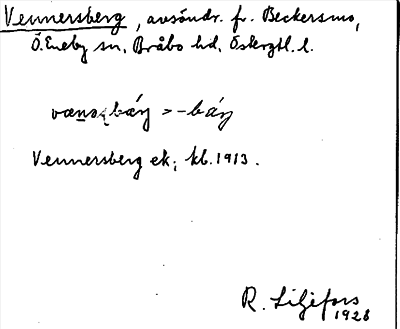 Vennersberg, avsöndr. fr. Beckersmo,
Ö. Eneby sn, Bråbo hd, Östergtl. l.
Vennersberg ek. kb. 1913.
R. Liljefors
1928